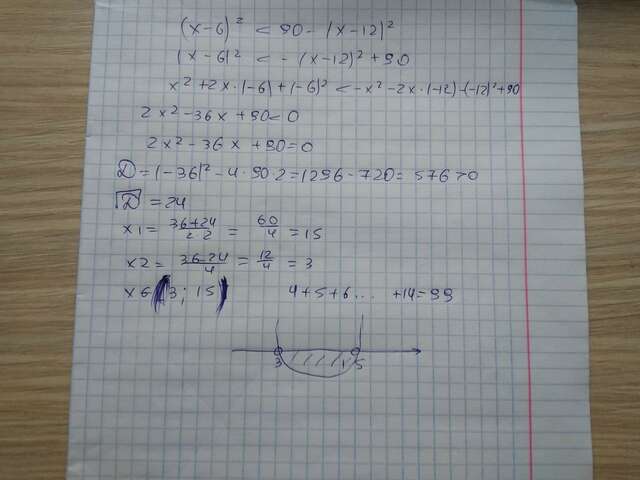 (x-6)² < 90 - (x-12)²
(x-6)² < - (x-12)² + 90
x² + 2x·(-6) + (-6)² < -x² - 2x·(-12) - (-12)² + 90
2x² - 36x + 90 < 0
2x² - 36x + 90 = 0
D = (-36)² - 4·90·2 = 1296 - 720 = 576 > 0
√D = 24
x1 = (36+24)/(2·2) = 60/4 = 15
x2 = (36-24)/4 = 12/4 = 3
x ∈ (3; 15) 4+5+6... +14=99
3 15